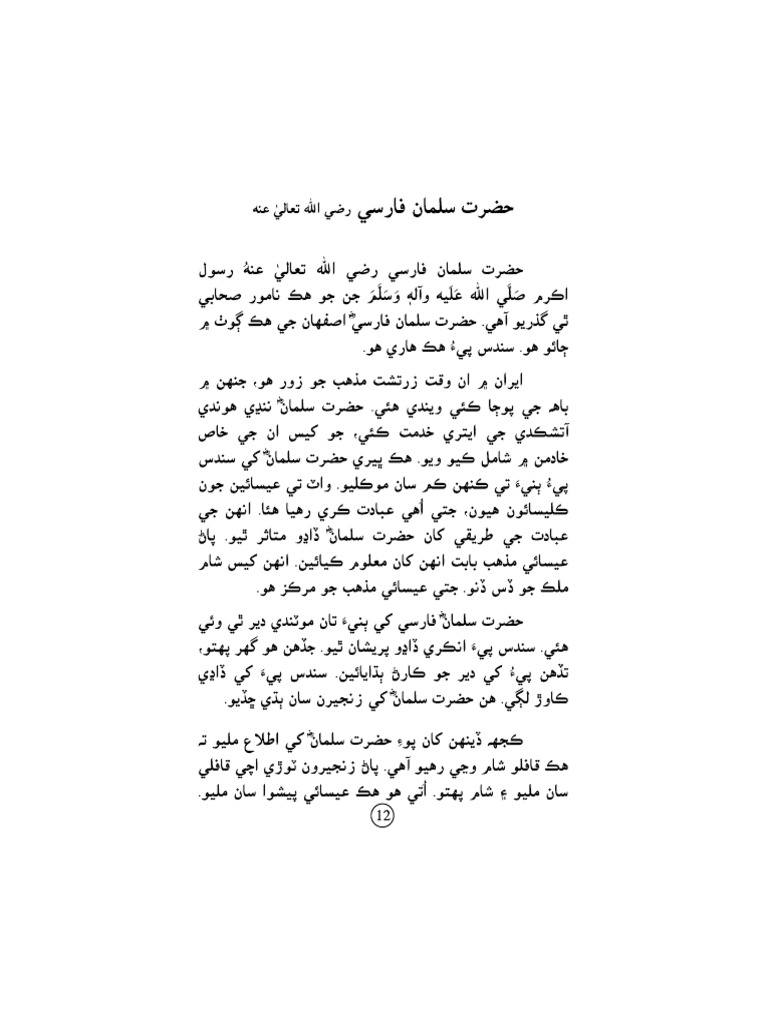 حضرت سلمان فارسي رضي الله تعاليٰ عنه
حضرت سلمان فارسي رضي الله تعاليٰ عنهُ رسول
اڪرم صَلَّي الله عَلَيه وآلهٖ وَسَلَّمَ جن جو هڪ نامور صحابي
ٿي گذريو آهي. حضرت سلمان فارسيؓ اصفهان جي هڪ ڳوٺ ۾
ڄائو هو. سندس پيءُ هڪ هاري هو.
ايران ۾ ان وقت زرتشت مذهب جو زور هو، جنهن ۾
باهه جي پوڄا ڪئي ويندي هئي. حضرت سلمانؓ ننڍي هوندي
آتشڪدي جي ايتري خدمت ڪئي، جو کيس ان جي خاص
خادمن ۾ شامل ڪيو ويو. هڪ ڀيري حضرت سلمانؓ کي سندس
پيءُ ٻنيءَ تي ڪنهن ڪم سان موڪليو. واٽ تي عيسائين جون
ڪليسائون هيون، جتي اُهي عبادت ڪري رهيا هئا. انهن جي
عبادت جي طريقي کان حضرت سلمانؓ ڏاڍو متاثر ٿيو. پاڻ
عيسائي مذهب بابت انهن کان معلوم ڪيائين. انهن کيس شام
ملڪ جو ڏس ڏنو. جتي عيسائي مذهب جو مرڪز هو.
حضرت سلمانؓ فارسي کي ٻنيءَ تان موٽندي دير ٿي وئي
هئي. سندس پيءَ انڪري ڏاڍو پريشان ٿيو. جڏهن هو گهر پهتو،
تڏهن پيءُ کي دير جو ڪارڻ ٻڌايائين. سندس پيءَ کي ڏاڍي
ڪاوڙ لڳي. هن حضرت سلمانؓ کي زنجيرن سان ٻڌي ڇڏيو.
ڪجهہ ڏينهن کان پوءِ حضرت سلمانؓ کي اطلاع مليو تہ
هڪ قافلو شام وڃي رهيو آهي. پاڻ زنجيرون ٽوڙي اچي قافلي
سان مليو ۽ شام پهتو. اُتي هو هڪ عيسائي پيشوا سان مليو.
12